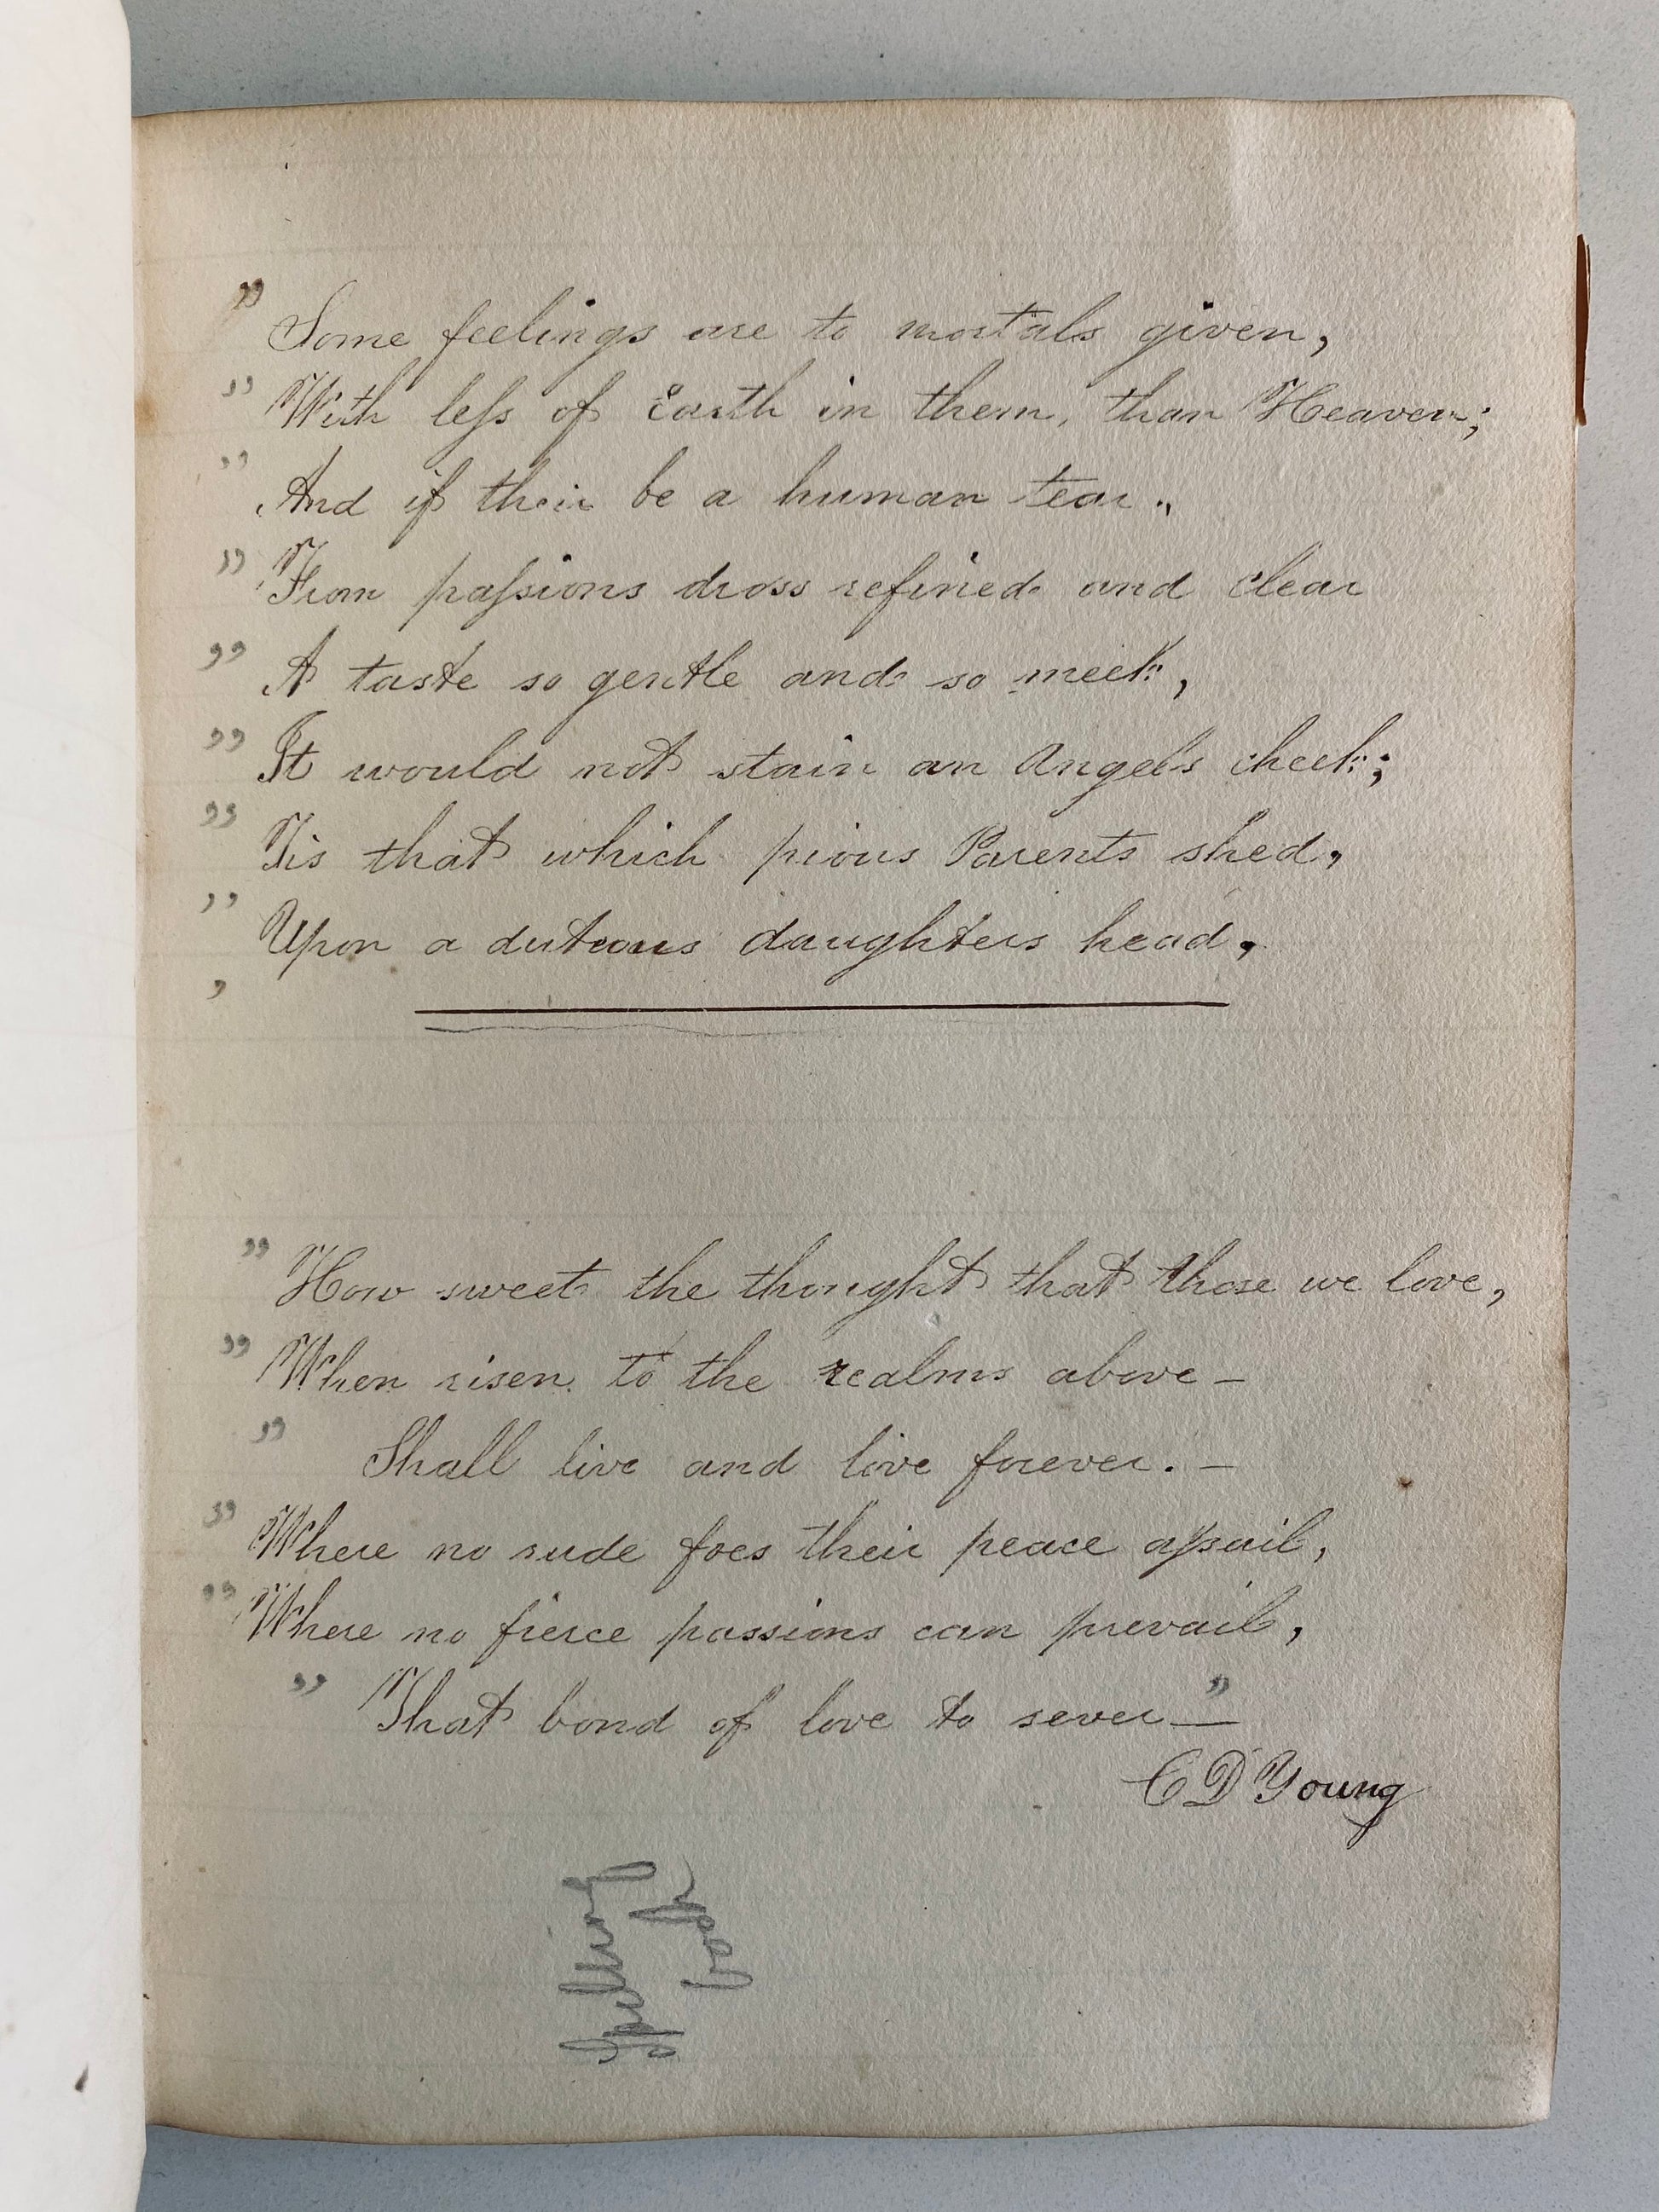 " Some feelings are to mortals given,
" With leſs of Earth in them, than Heaven;
" And if their be a human tear.,
" From paſsions dross refined and clear
" A taste so gentle and so meek,
" It would not stain an Angels cheek;
" Tis that which pious Parents shed,
" Upon a duteous daughters head,
,
" How sweet the thought that those we love,
" When risen to the realms above –
" Shall live and love forever. –
" Where no rude foes their peace aſsail,
" Where no fierce passions can prevail,
" That bond of love to sever – "
C D Young
Spelling
book